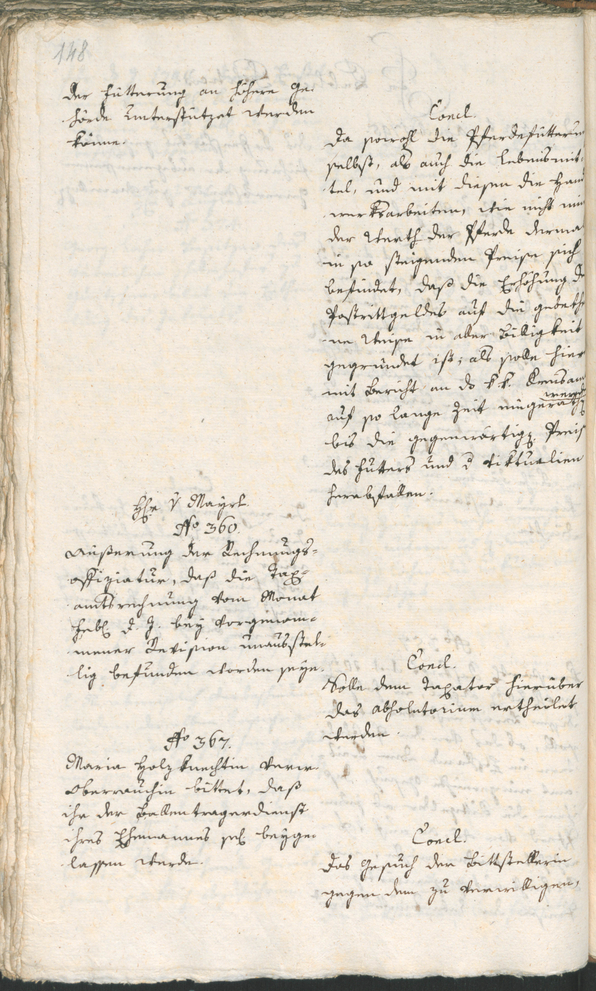 148
der Fütterung an höhere Be-
hörde unterstützet werden
könne.
Concl.
da sowohl die Pferdefütterung
selbst, als auch die Lebensmit-
tel, und mit diesen die Hand-
werksarbeiten, wie nicht min
der Werth der Pferde derma
in so steigenden Preise sich
befindet, daß die Erhöhung d
Postrittgeldes auf die gebeth
ne Weise in aller Billigkeit
gegründet ist; als solle hier
mit Bericht an das k. k. Kreisamt
auf so lange Zeit eingerathen
werden
bis die gegenwärtig. Preis
des Futters und Viktualien
herabfallen.
Hr. v Mayrl.
No 360
Äußerung der Rechnungs-
offiziatur, daß die Tax-
amtsrechnung vom Monat
Febr. d. J. bey vorgenom-
mener Revision unausstel-
lig befunden worden seye.
Concl.
Solle dem Taxator hierüber
das Absolutorium ertheilet
werden.
No 367.
Maria Holzknechtin verw.
Oberrauchin bittet, daß
ihr der Ballentragerdienst
ihres Ehemannes sel. beyge-
lassen werde.
Concl.
Das Gesuch der Bittstellerin
gegen dem zu verwilligen,